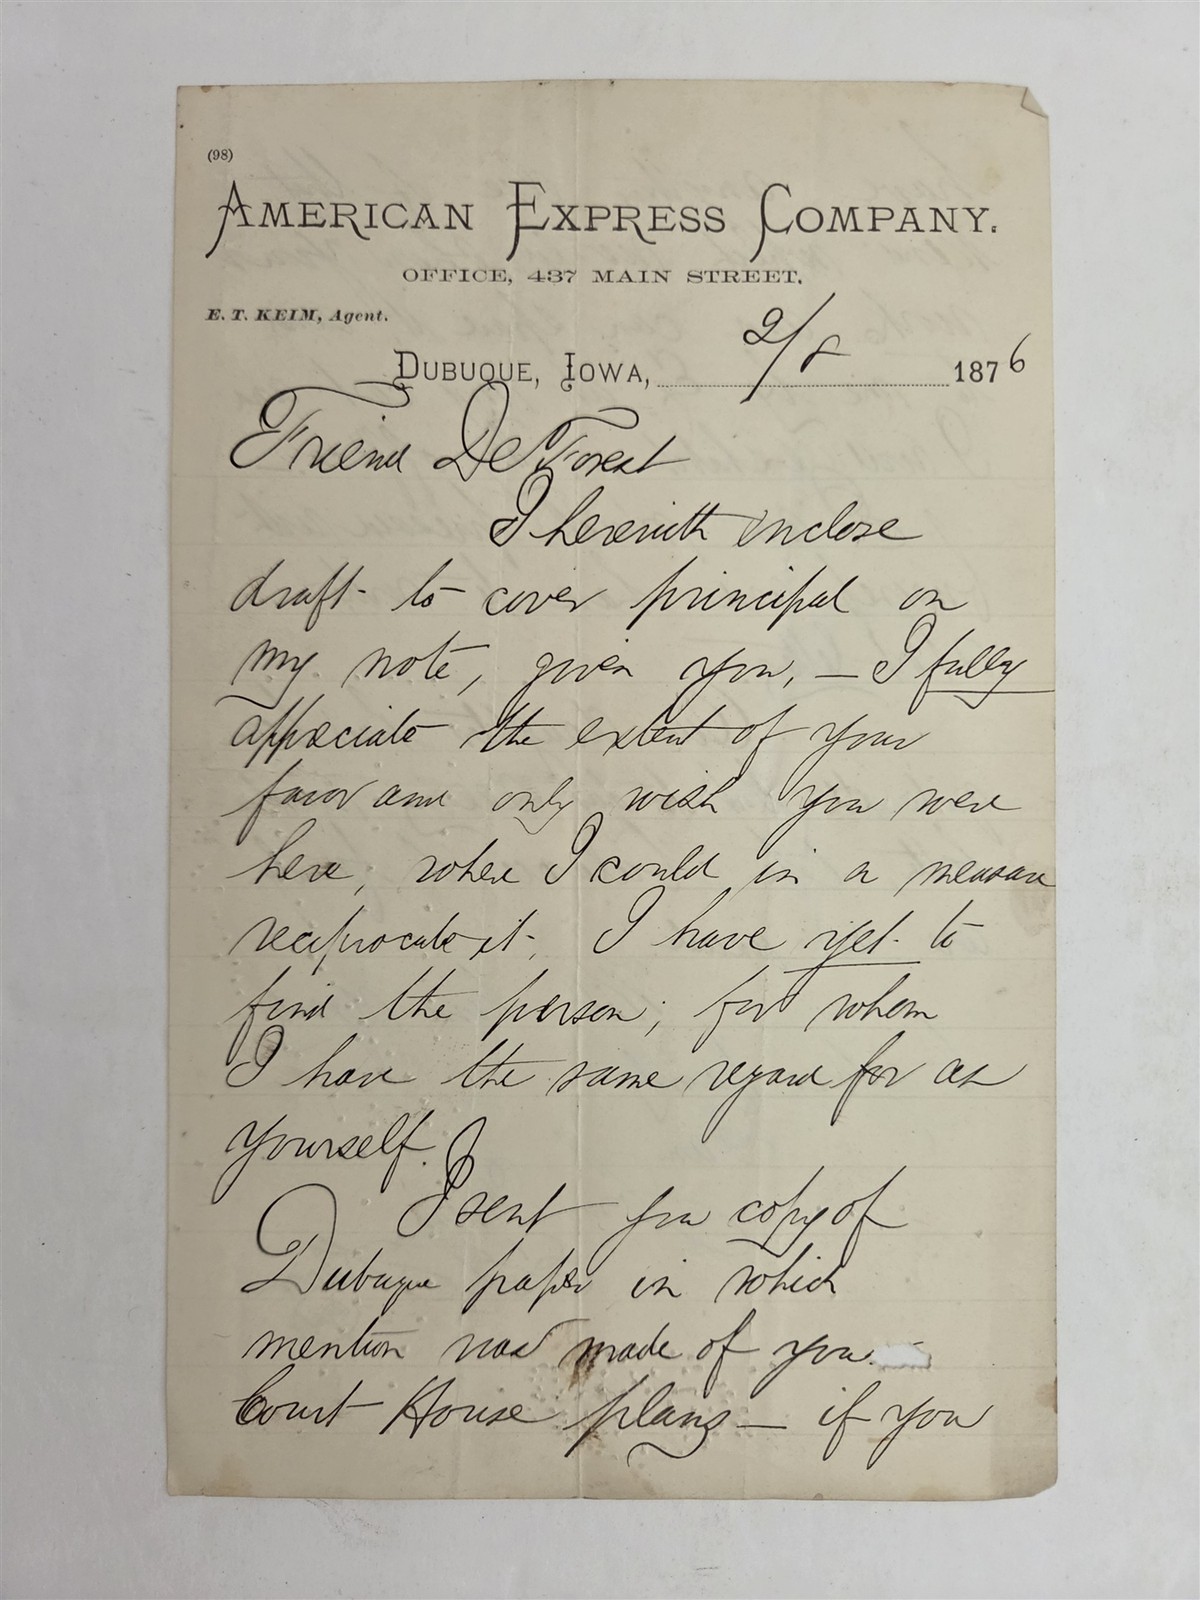 (98)
AMERICAN EXPRESS COMPANY.
OFFICE, 437 MAIN STREET.
E. T. KEIM, Agent.
DUBUQUE, IOWA, 2/8 1876
Friend DeForest
I herewith enclose
draft to cover principal on
my note, given you, — I fully
appreciate the extent of your
favor and only wish you were
here, where I could in a measure
reciprocate it. I have yet to
find the person, for whom
I have the same regard for as
yourself.
I sent you copy of
Dubuque paper in which
mention was made of you
Court House plans — if you